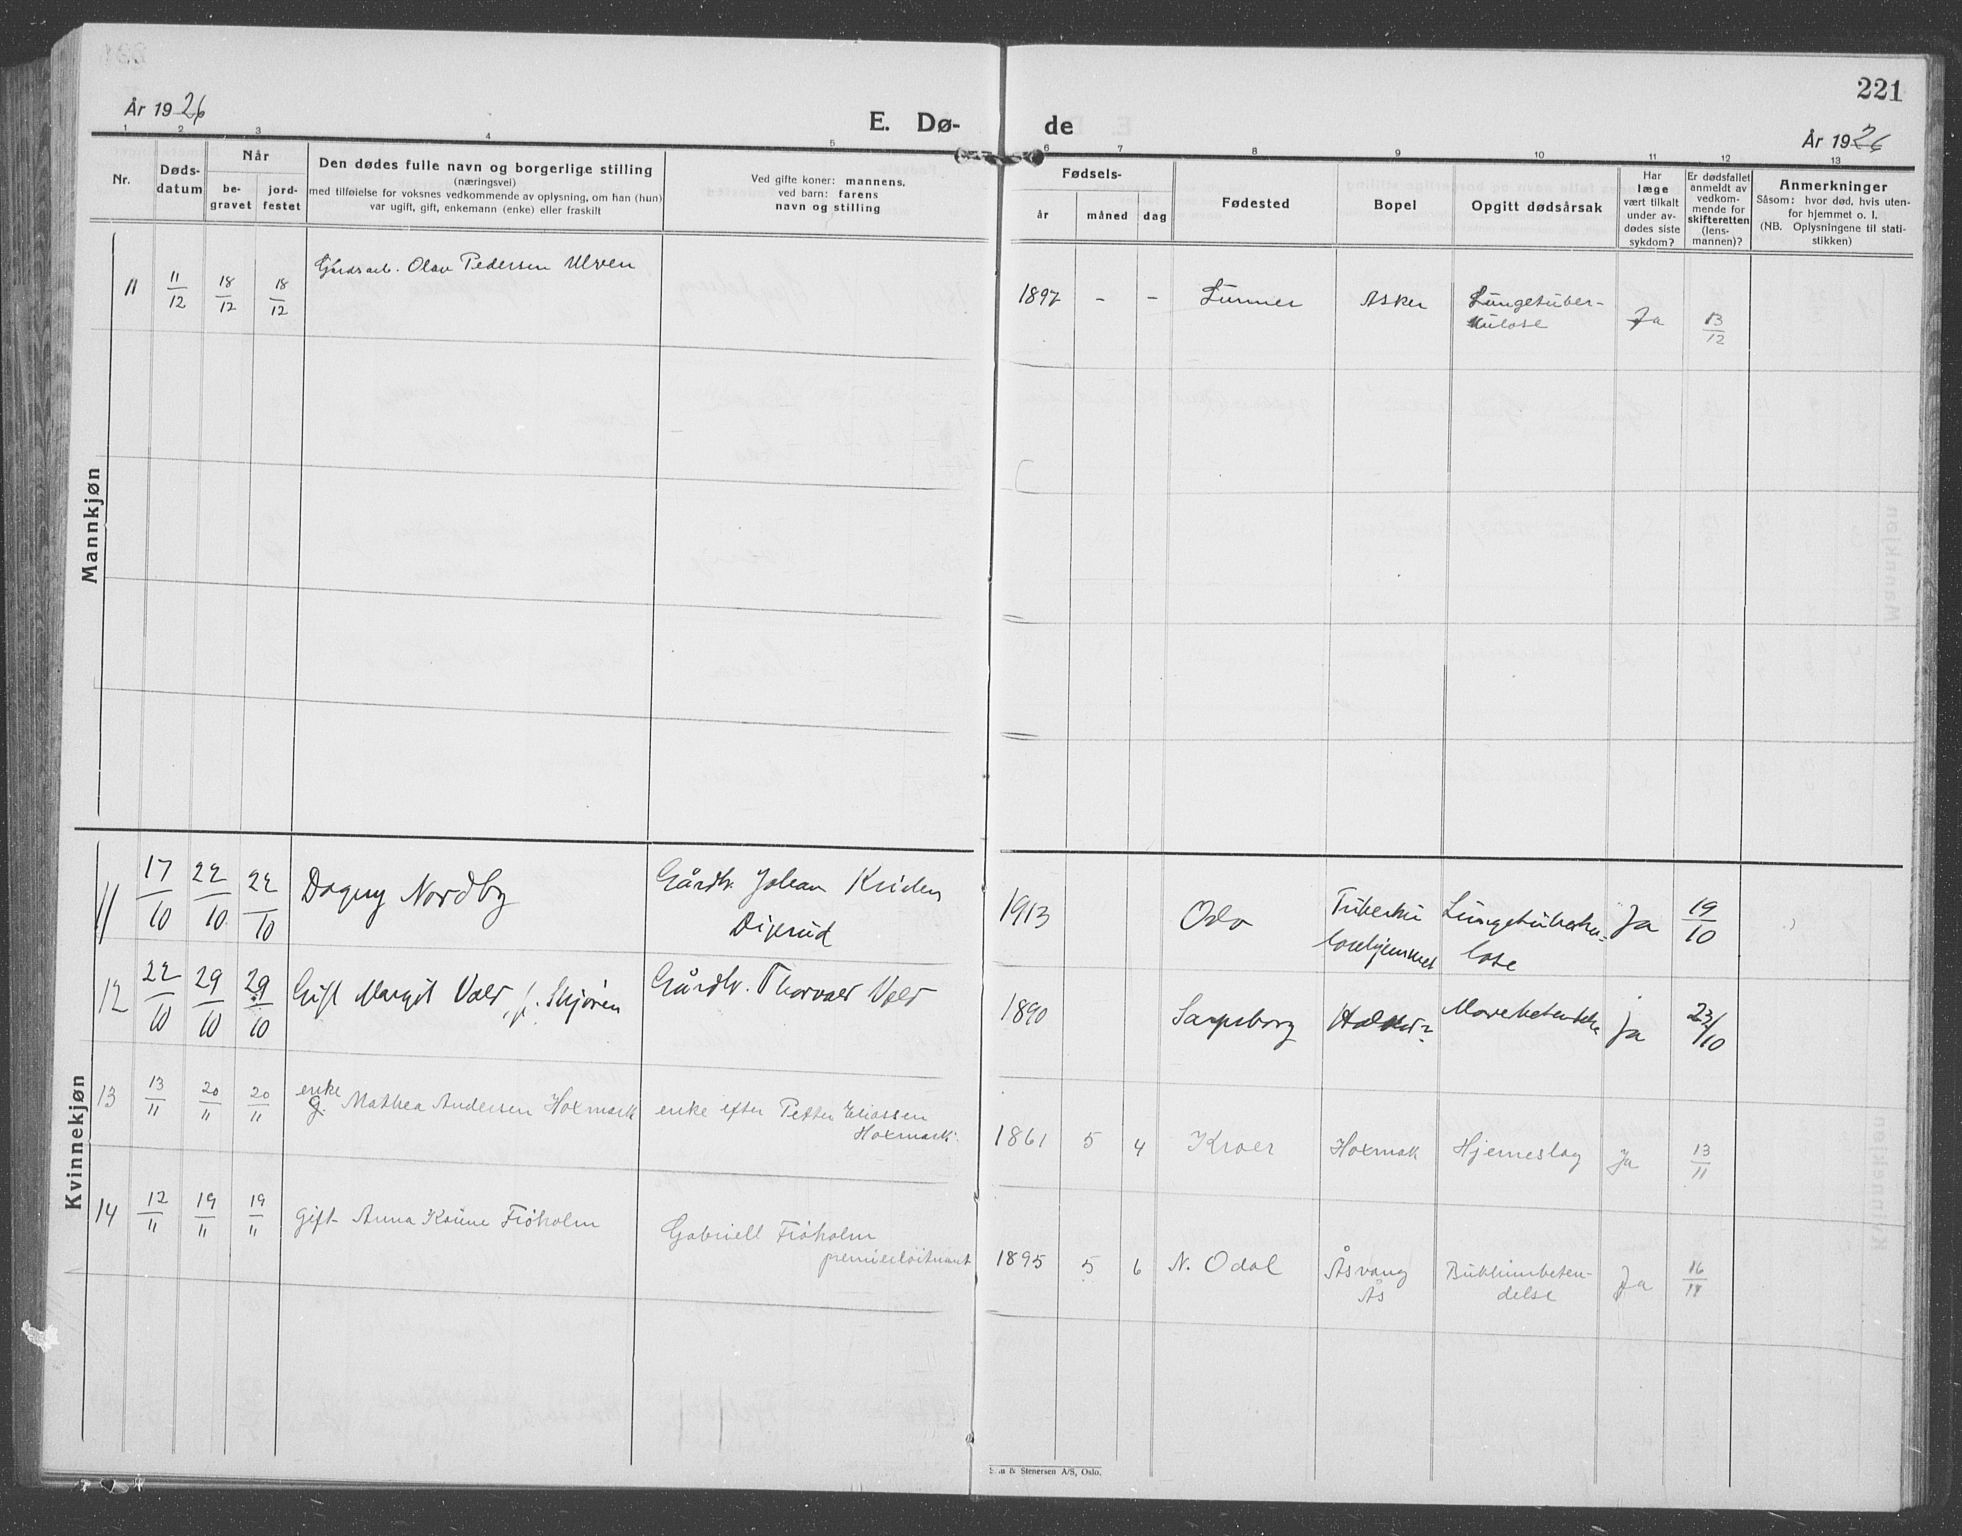 221
År 1926
E. Dø-
de
År 1926
1 2 3 4 5 6 7 8 9 10 11 12 13
Nr.
Døds-
datum
Når
be-
gravet
jord-
festet
Den dødes fulle navn og borgerlige stilling
(næringsvei)
med tilføielse for voksnes vedkommende av oplysning, om han (hun)
var ugift, gift, enkemann (enke) eller fraskilt
Ved gifte koner: mannens,
ved barn: farens
navn og stilling
Fødsels-
år
måned
dag
Fødested
Bopel
Opgitt dødsårsak
Har
læge
vært tilkalt
under av-
dødes siste
sykdom?
Er dødsfallet
anmeldt av
vedkom-
mende for
skifteretten
(lens-
mannen)?
Anmerkninger
Såsom: hvor død, hvis uten-
for hjemmet o. l.
(NB. Oplysningene til stati-
stikken)
Mannkjøn
11 11/12 18/12 18/12 Gårdsarb. Olav Pedersen Ulven 1897 - - Lunner Asker Lungetuber-
kulose Ja 13/12
Kvinnekjøn
11 17/10 22/10 22/10 Dagny Nordby Gårdbr. Johan
1913 Oslo Tuberku
losehjemmet Lungetuberku-
lose Ja 19/10
12 22/10 29/10 29/10 Gift Margit Vold, f. Skjøren Gårdbr. Thorvald Vold 1890 Sarpsborg Ja 23/10
13 13/11 20/11 20/11 enke
G. Mathea Andersen Hoxmark enke efter Petter Eliassen
Hoxmark. 1861 5 4 Kroer Hoxmark Hjerneslag Ja 13/11
14 12/11 19/11 19/11 gift Anna Karine Frøholm Gabriell Frøholm
premierløitnant 1895 5 6 N. Odal Åsvang
Ås Bukhinnbeten-
delse Ja 16/11
& Stenersen A/S, Oslo.